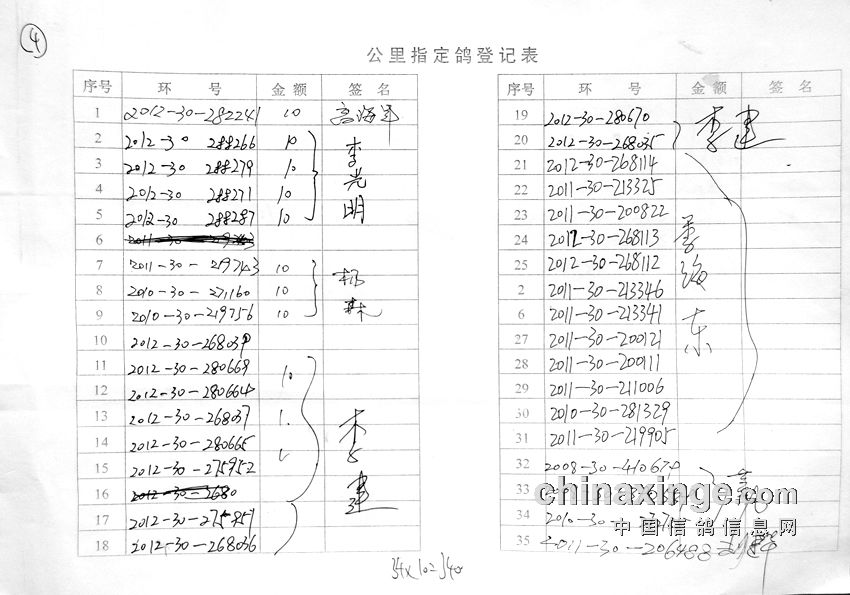 4
公里指定鸽登记表
序号 环 号 金额 签 名
1 2012-30-282241 10 高海军
2 2012-30 288266 10
3 2012-30 288279 10
4 2012-30 288271 10
5 2012-30 288287 10
李光明
6
7 2011-30-219743 10
8 2010-30-271160 10
9 2010-30-219756 10
杨
10 2012-30-268039
11 2012-30-280669 10
12 2012-30-280664
13 2012-30-268037
14 2012-30-280665
15 2012-30-275952
16 2012-30-2680
17 2012-30-275951
18 2012-30-268036
李建
序号 环 号 金额 签 名
19 2012-30-280670
20 2012-30-268035
李建
21 2012-30-268114
22 2011-30-213325
23 2011-30-200822
24 2012-30-268113
25 2012-30-268112
2 2011-30-213346
6 2011-30-213341
27 2011-30-200121
28 2011-30-200111
29 2011-30-211006
30 2010-30-281329
31 2011-30-219905
李海东
32 2008-30-410670
33
34 2010-30
35 2011-30-206488
34×10=340
chinaxinge.com
中国信鸽信息网